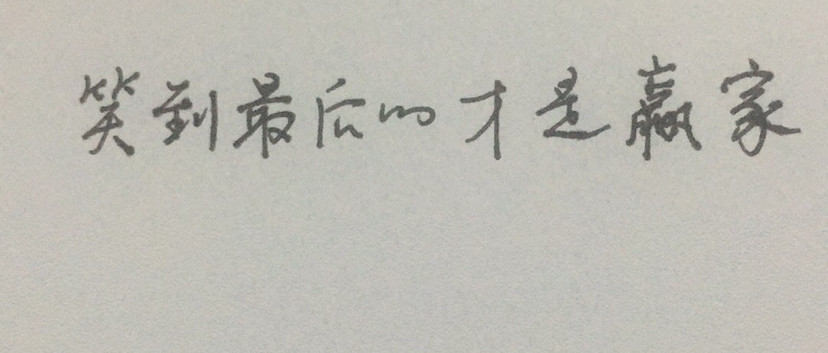 笑到最后的才是赢家